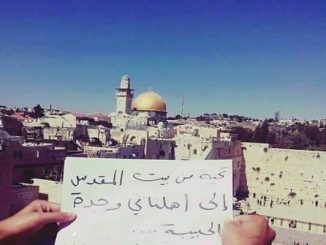 تحيه من بيت المقدس
الى أهلنا في وحدة
الحبيبة ....